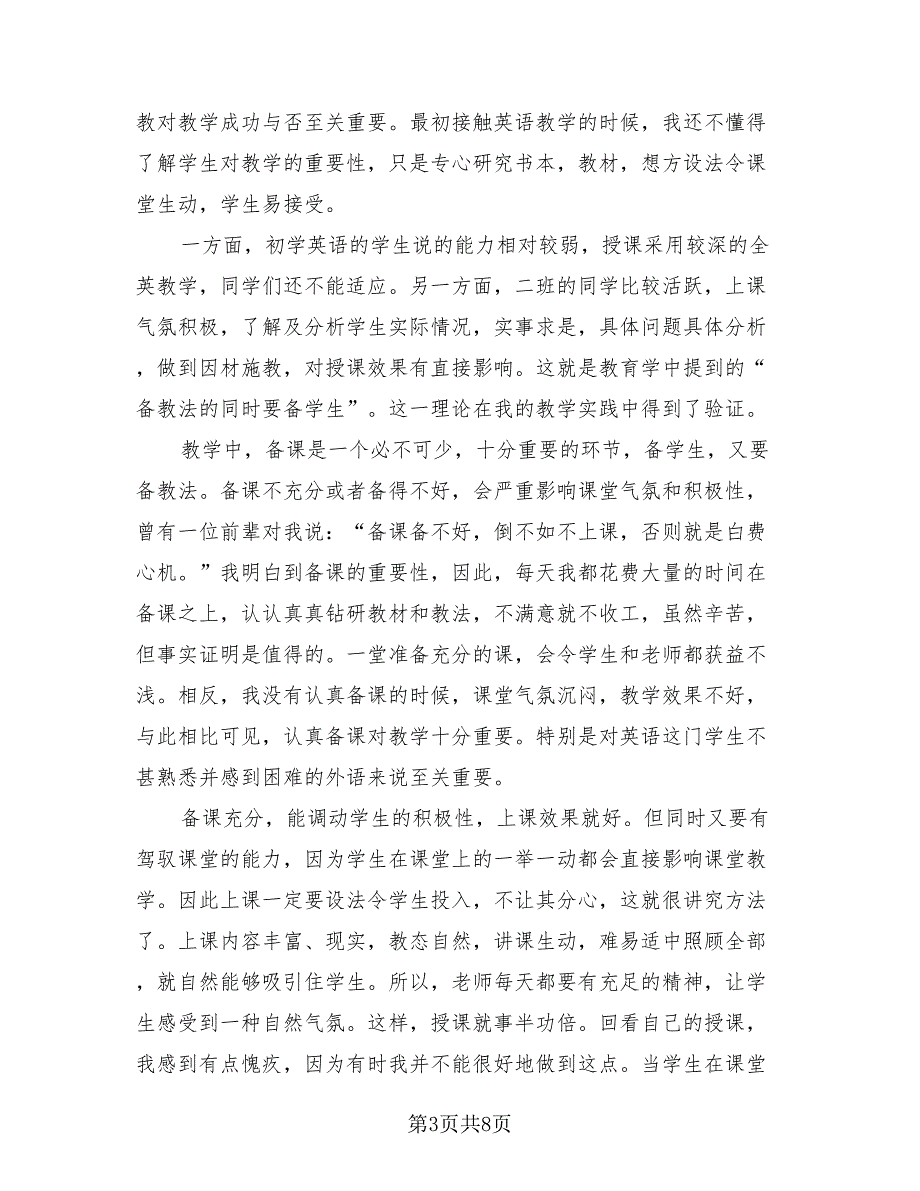 教对教学成功与否至关重要。最初接触英语教学的时候，我还不懂得
了解学生对教学的重要性，只是专心研究书本，教材，想方设法令课
堂生动，学生易接受。
一方面，初学英语的学生说的能力相对较弱，授课采用较深的全
英教学，同学们还不能适应。另一方面，二班的同学比较活跃，上课
气氛积极，了解及分析学生实际情况，实事求是，具体问题具体分析
，做到因材施教，对授课效果有直接影响。这就是教育学中提到的“
备教法的同时要备学生”。这一理论在我的教学实践中得到了验证。
教学中，备课是一个必不可少，十分重要的环节，备学生，又要
备教法。备课不充分或者备得不好，会严重影响课堂气氛和积极性，
曾有一位前辈对我说：“备课备不好，倒不如不上课，否则就是白费
心机。”我明白到备课的重要性，因此，每天我都花费大量的时间在
备课之上，认认真真钻研教材和教法，不满意就不收工，虽然辛苦，
但事实证明是值得的。一堂准备充分的课，会令学生和老师都获益不
浅。相反，我没有认真备课的时候，课堂气氛沉闷，教学效果不好，
与此相比可见，认真备课对教学十分重要。特别是对英语这门学生不
甚熟悉并感到困难的外语来说至关重要。
备课充分，能调动学生的积极性，上课效果就好。但同时又要有
驾驭课堂的能力，因为学生在课堂上的一举一动都会直接影响课堂教
学。因此上课一定要设法令学生投入，不让其分心，这就很讲究方法
了。上课内容丰富、现实，教态自然，讲课生动，难易适中照顾全部
，就自然能够吸引住学生。所以，老师每天都要有充足的精神，让学
生感受到一种自然气氛。这样，授课就事半功倍。回看自己的授课，
我感到有点愧疚，因为有时我并不能很好地做到这点。当学生在课堂
第3页共8页